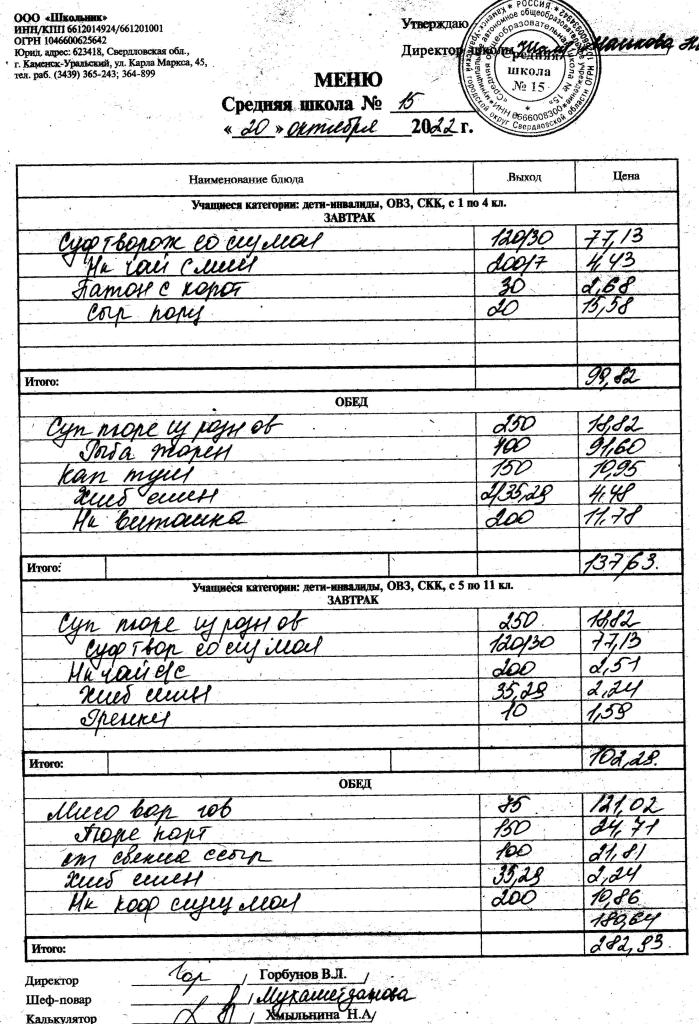 ООО «Школьник»
ИНН/КПП 6612014924/661201001
ОГРН 1046600625642
Юрид. адрес: 623418, Свердловская обл.,
г. Каменск-Уральский, ул. Карла Маркса, 45,
тел. раб. (3439) 365-243; 364-899
Утверждаю
Директор школы
Средняя
школа
№ 15
МЕНЮ
Средняя школа № 15
« 20 » октября 2022 г.
Наименование блюда Выход Цена
Учащиеся категории: дети-инвалиды, ОВЗ, СКК, с 1 по 4 кл.
ЗАВТРАК
Суф творож со сгу мол 120/30 77,13
Нк чай с лим 200/7 4,43
Батон с корот 30 2,68
Сыр порц 20 15,58
Итого: 99,82
ОБЕД
Суп пюре из разн ов 250 18,82
Рыба жарен 100 91,60
Кап туш 150 10,95
Хлеб смеш 2/35,29 4,48
Нк витошка 200 11,78
Итого: 137,63.
Учащиеся категории: дети-инвалиды, ОВЗ, СКК, с 5 по 11 кл.
ЗАВТРАК
Суп пюре из разн ов 250 18,82
Суф твор со сгу мол 120/30 77,13
Нк чай с/с 200 2,51
Хлеб смеш 35,29 2,24
Гренки 10 1,59
Итого: 102,29.
ОБЕД
Мясо вар гов 75 121,02
Пюре карт 150 24,71
от свекла с сыр 100 21,81
Хлеб смеш 35,29 2,24
Нк коф сгущ мол 200 10,86
180,64
Итого: 282,93.
Директор / Горбунов В.Л. /
Шеф-повар / Мухаметзанова
Калькулятор / Хмыльнина Н.А/